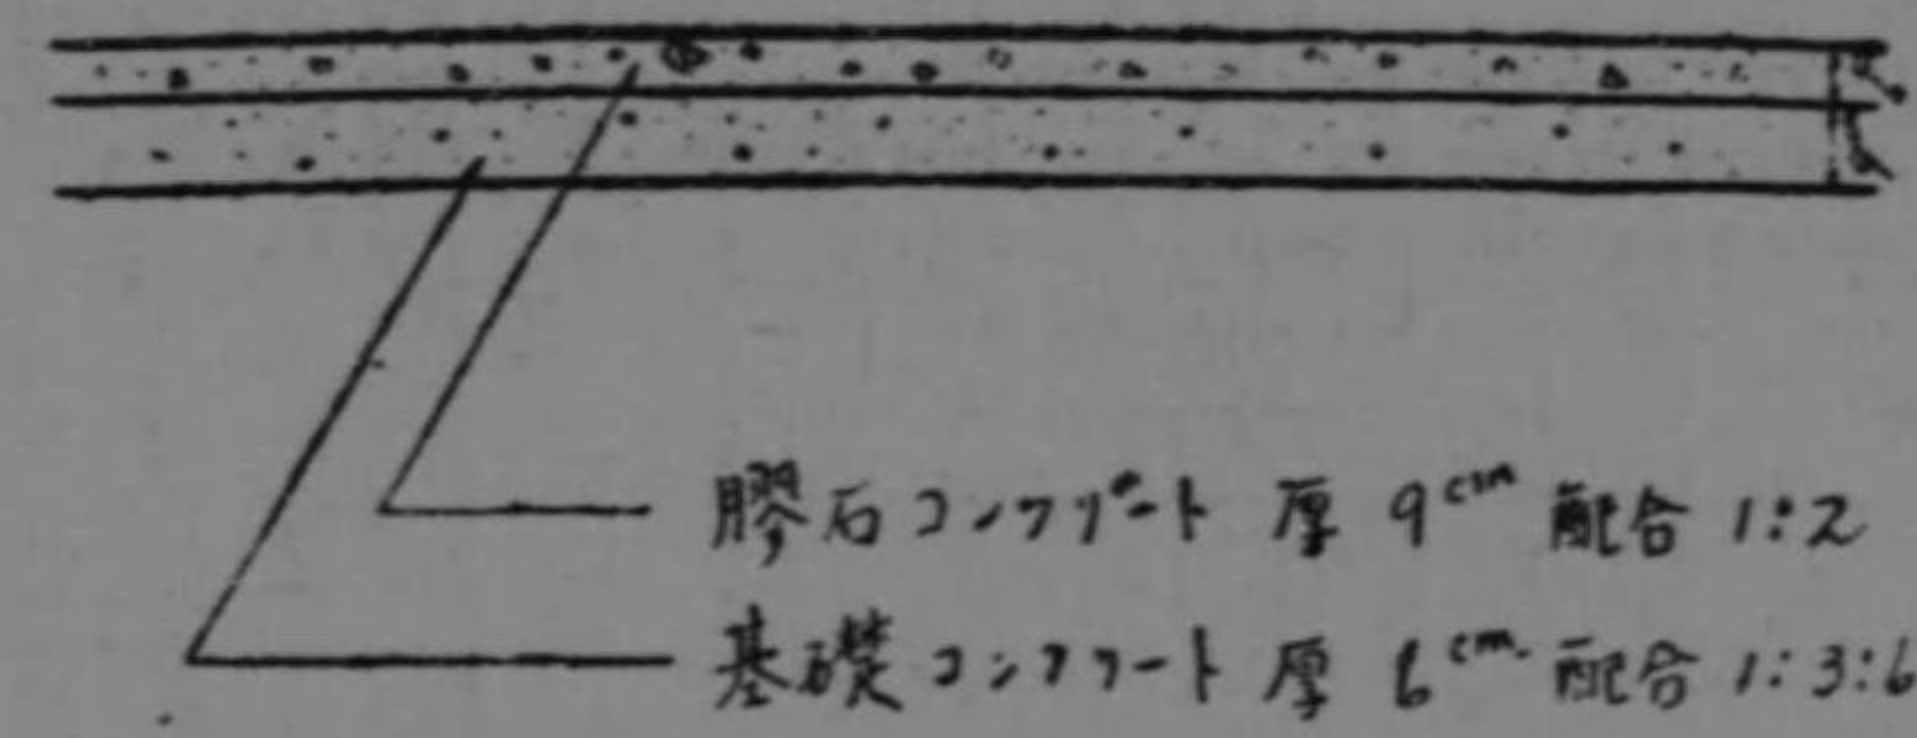 膠石コンクリート 厚 9cm 配合 1:2
基礎コンクリート 厚 6cm. 配合 1:3:6